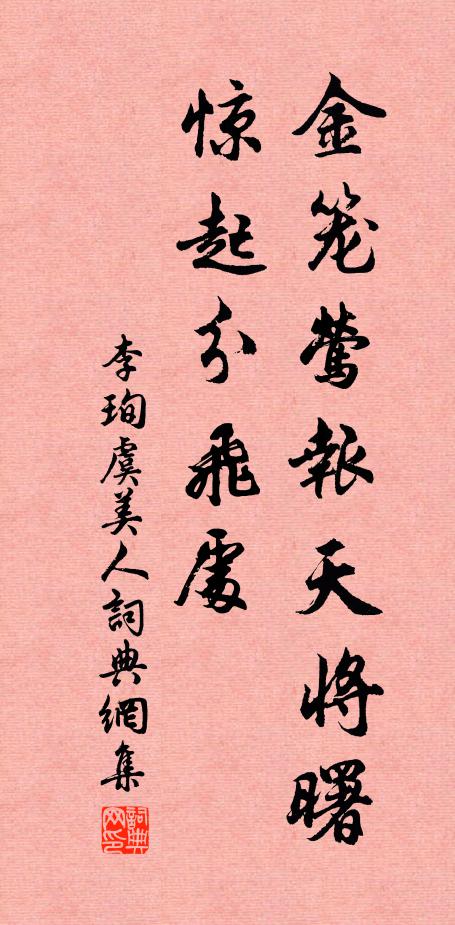 金笼莺報天将曙
惊起分飛處
李珣虞美人詞典網集
詞典网印